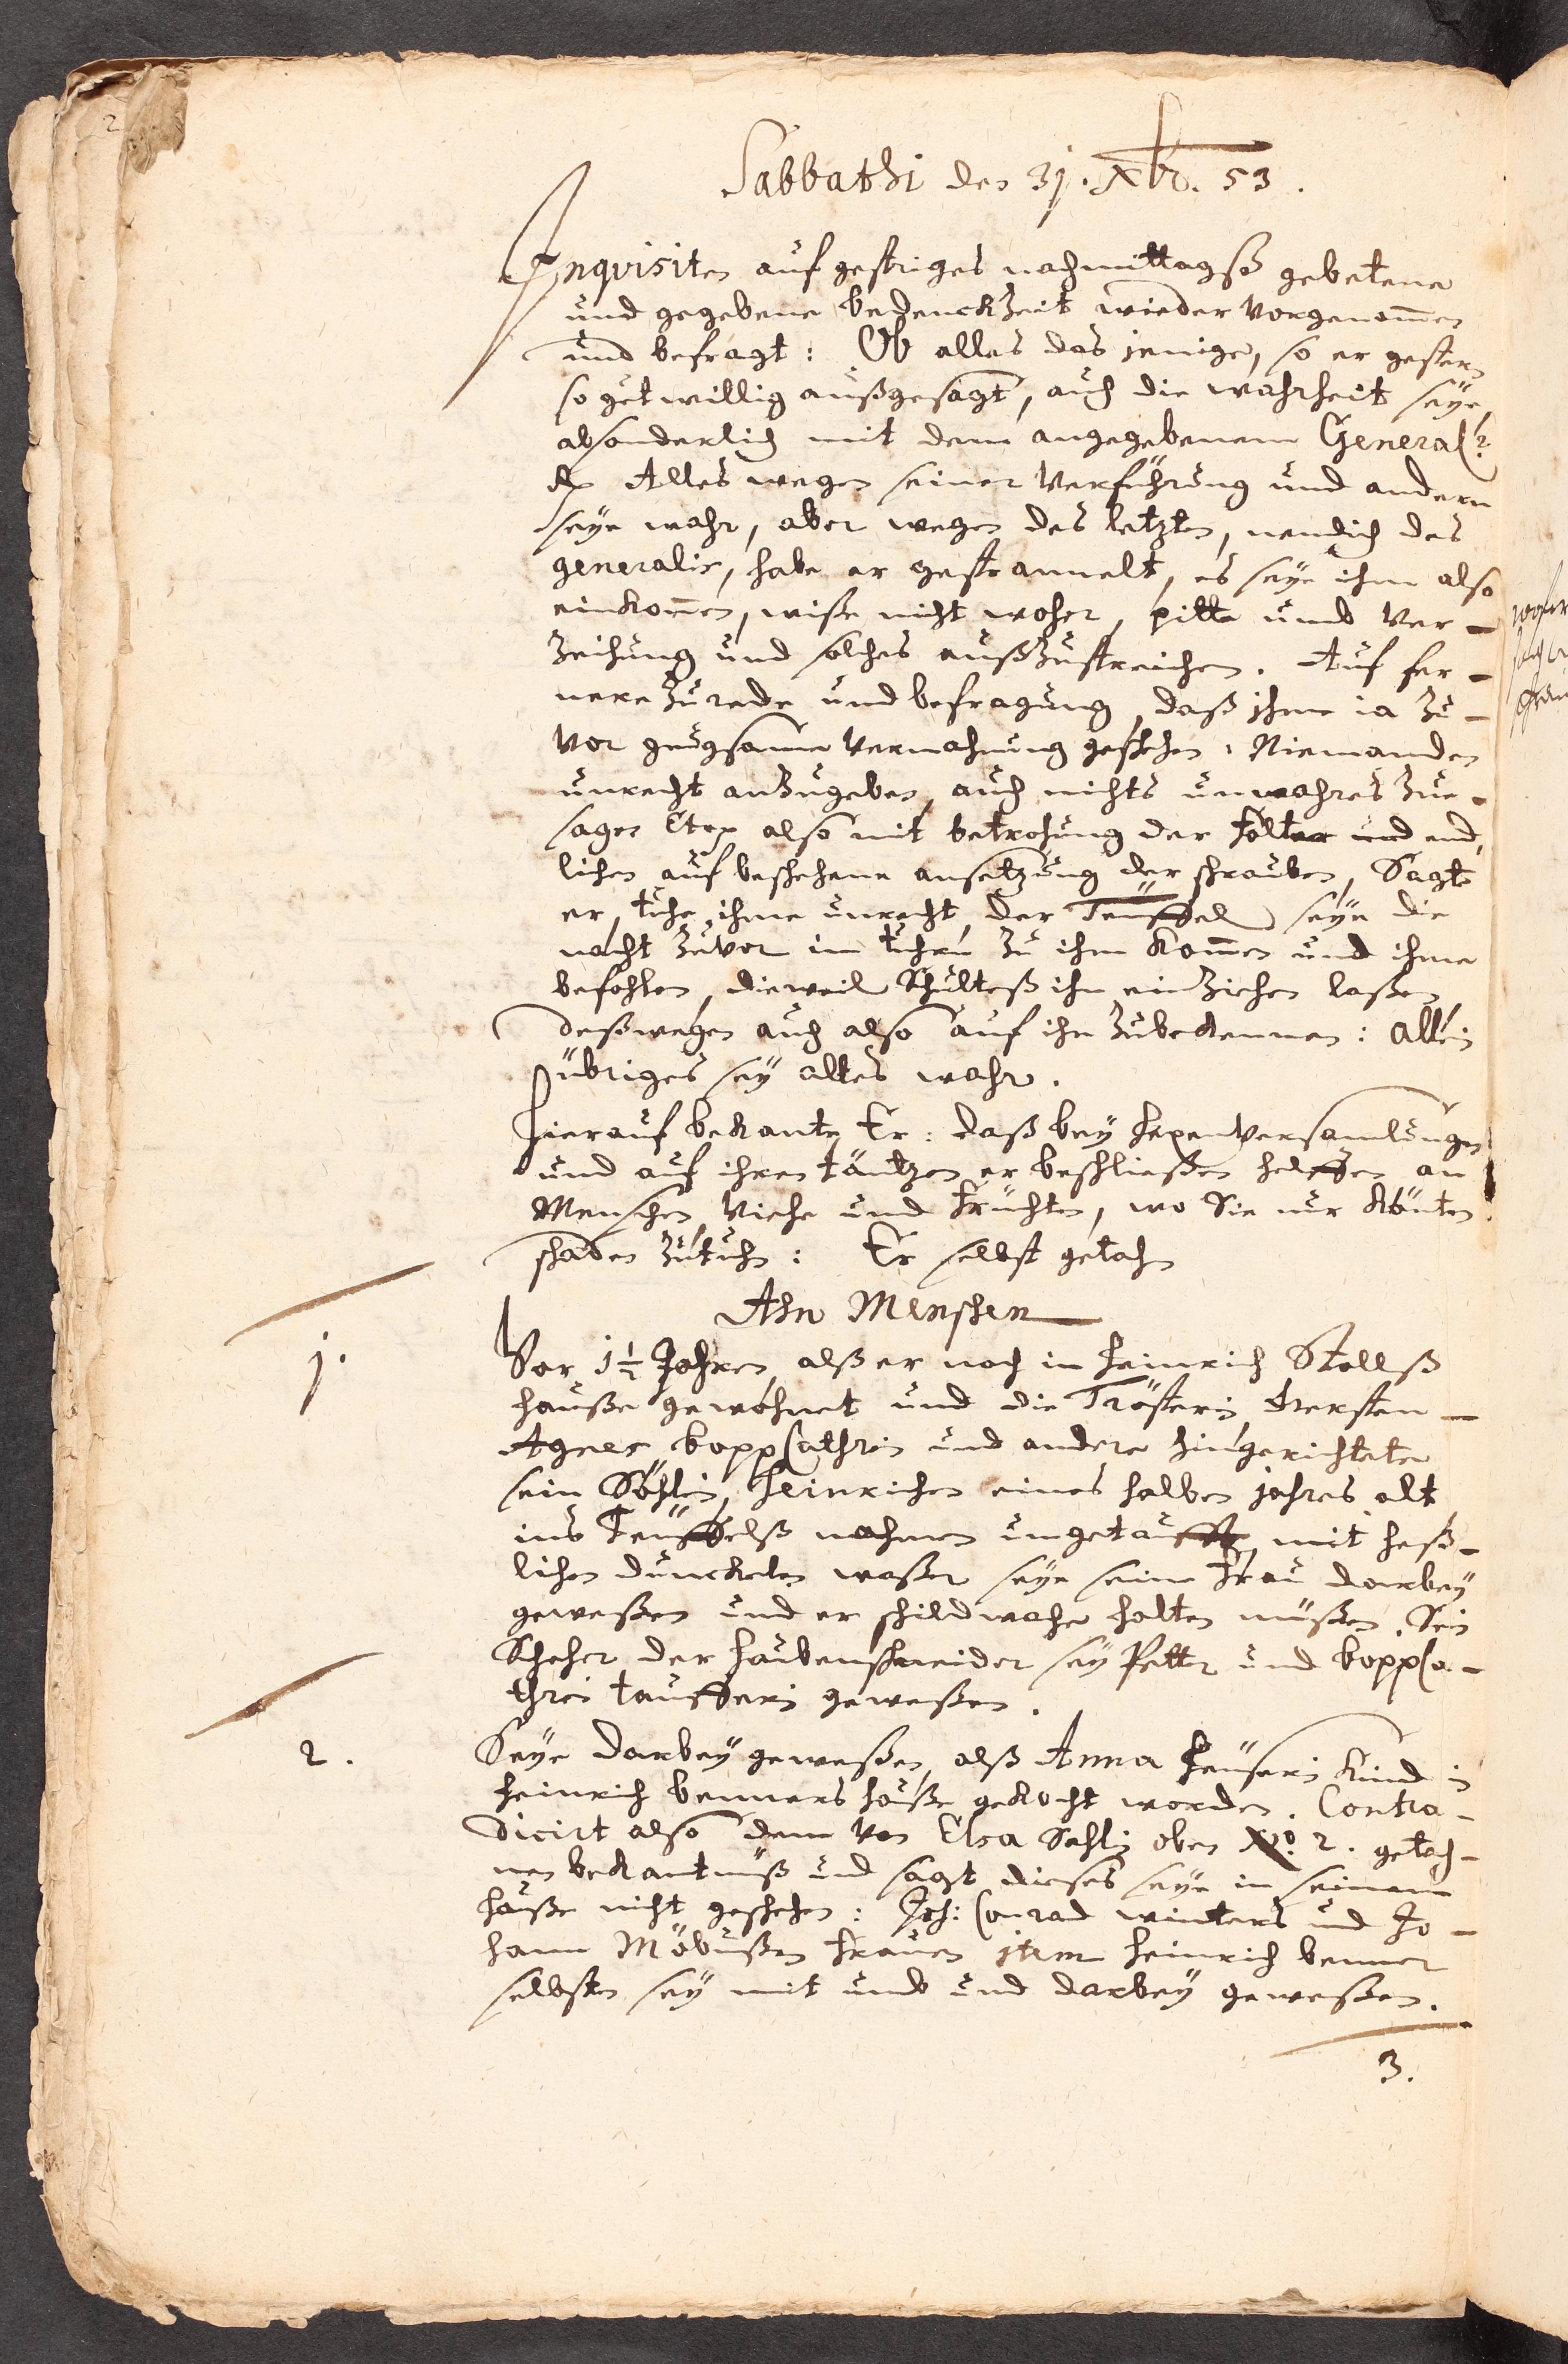 2
Sabbathi den 31. Xbr. 53.
Inquisiten auf gestriges nachmittagß gebetene
und gegebene bedenckzeit wieder vorgenom̄en
und befragt: Ob alles das jenige, so er gestern
so gutwillig außgesagt, auch die wahrheit seye,
absonderlich mit dem angegebenem General?
Rx Alles wegen seiner Verführung und andern
seye wahr, aber wegen des letzten, nemblich des
generalis, habe er gestrammelt, es seye ihm also
einkom̄en, wiße nicht woher, pitte umb Ver-
zeihung und solches außzustreichen. Auf fer-
nere zurede und befragung, daß ihme ja zu-
vor gnugsame Vermahnung geschehen, Niemanden
unrecht anzugeben, auch nichts unwahres zue-
sagen Etc also mit betrohung der folter und end,
lichen auf beschehene ansetzung der schrauben, Sagt
er, tuhe ihme unrecht, der Teuffel seye die
nacht zuvor im tuhrn zu ihm kom̄en und ihme
befohlen, dieweil Schulteß ihn einziehen laßen
deßwegen auch also auf ihn zubekennen: Allein
übriges sey alles wahr.
Hierauf bekante Er: daß bey hexenversamlungen
und auf ihren täntzen er beschließen helffen an
Menschen, Viehe und früchten, wo Sie nur könten
schaden zutuhn: Er selbst getahn
Ahn Menschen
1.
Vor 1½ Jahren, alß er noch in Heinrich Stollß
hauße gewohnet und die Trösterin, Kersten-
Agnes, boppCathrin und andere hingerichtete
sein Söhlein, Heinrichen eines halben jahres alt
ins Teuffelß nahmen umgetaufft, mit heß-
lichen dunckelen waßer seye seine frau darbey
geweßen und er schildwache halten müßen, Sein
Schweher der haubenschneider sey Petter und boppCa-
thrin tauffferin geweßen.
2.
Seye darbey geweßen, alß Anna Heuserin kind in
Heinrich benners hauße gekocht worden. Contra-
dicirt also dem von Elsa Sahlin oben No. 2. getah-
nen bekantnuß und sagt dieses seye in seinem
hauße nicht geschehen: Joh: Conrad winters und Jo-
hann Möbußen frauen item Heinrich benner
selbsten sey mit umb und darbey geweßen.
3.